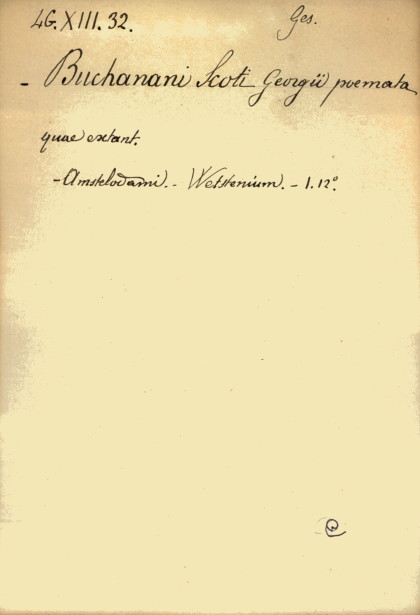 46.XIII.32. Ges.
- Buchanani Scoti Georgii poemata
quae extant.
- Amstelodami. - Wetstenium. - 1.12º.